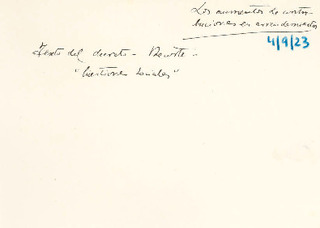 Los aumentos de contri-
buciones en arrendamientos
4/9/23
Texto del decreto - Recorte -
"Cuestiones Sociales"